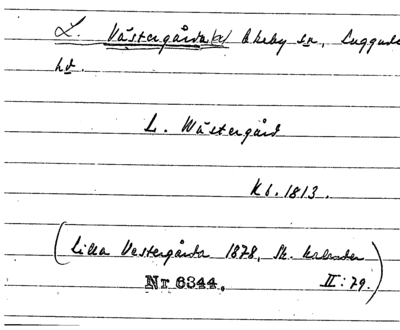 L. Västergårda(r) Ekeby sn, Luggude
hd.
L. Wästergård
Kb. 1813.
(Lilla Vestergårda 1878, Sk. kalender
Nr 6344. II: 79.)